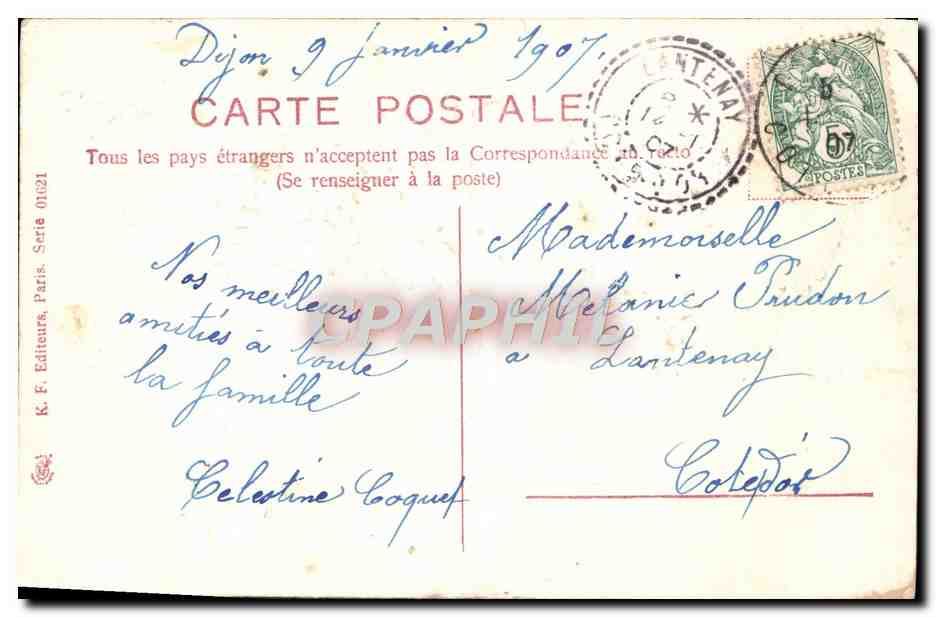 Dijon 9 Janvier 1907
CARTE POSTALE
Tous les pays étrangers n'acceptent pas la Correspondance au recto
(Se renseigner à la poste)
K. F. Editeurs, Paris. Serie 01621
LANTENAY
5
07
5
POSTES
Nos meilleurs
amitiés à toute
la famille
Celestine Coquet
Mademoiselle
Melanie Prudon
a Lantenay
Cotedor
CPAPHIL